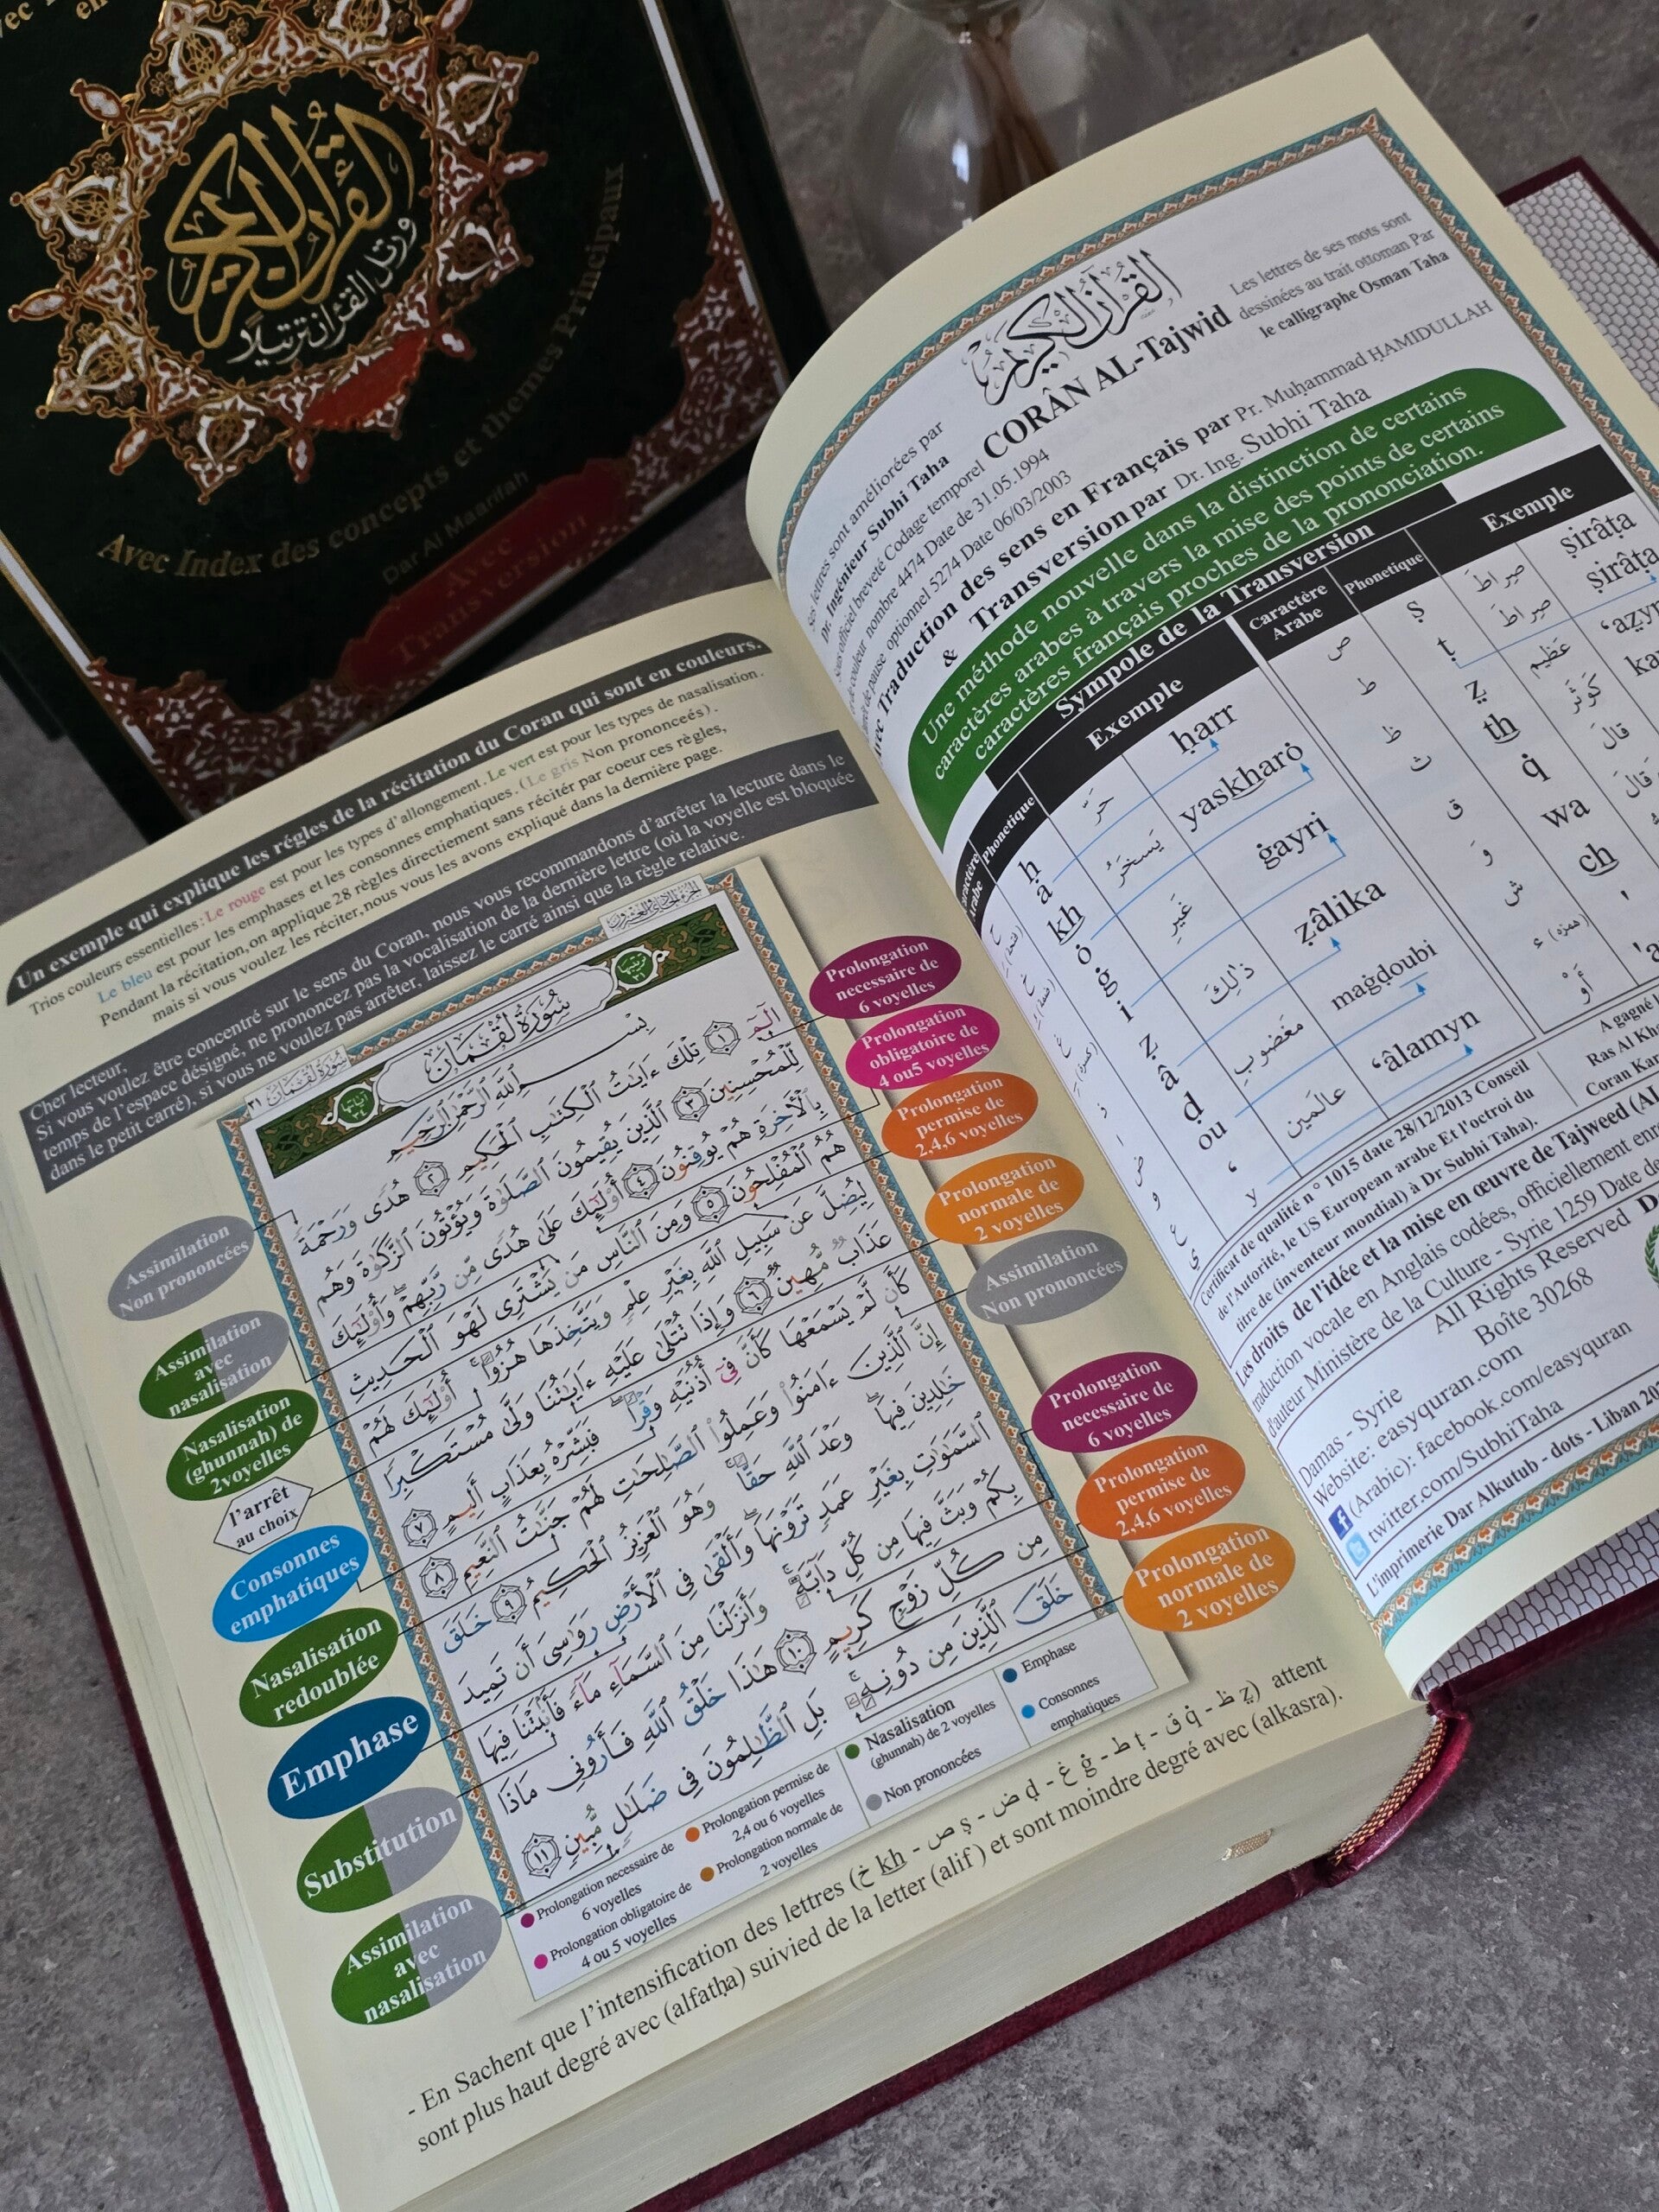 القرآن الكريم
ورتل القرآن ترتيلا
Avec Index des concepts et thèmes Principaux
Dar Al Maarifah
Avec
Transversion
Un exemple qui explique les régles de la récitation du Coran qui sont en couleurs.
Trios couleurs essentielles: Le rouge est pour les types d'allongement. Le vert est pour les types de nasalisation.
Le bleu est pour les emphases et les consonnes emphatiques. (Le gris Non prononceés).
Pendant la récitation, on applique 28 règles directiement sans récitér par coeur ces règles,
mais si vous voulez les réciter, nous vous les avons expliqué dans la dernière page.
Cher lecteur,
Si vous voulez être concentré sur le sens du Coran, nous vous recommandons d'arrêter la lecture dans le
temps de l'espace désigné, ne prononcez pas la vocalisation de la dernière lettre (où la voyelle est bloquée
dans le petit carré), si vous ne voulez pas arrêter, laissez le carré ainsi que la règle relative.
الجزء الحادي والعشرون
سورة لقمان ٣١
ترتيبها ٣١
سُورَةُ لُقْمَانَ
آياتها ٣٤
بِسْمِ ٱللَّهِ ٱلرَّحْمَٰنِ ٱلرَّحِيمِ
الٓمٓ ١ تِلْكَ ءَايَٰتُ ٱلْكِتَٰبِ ٱلْحَكِيمِ ٢ هُدًى وَرَحْمَةً
لِّلْمُحْسِنِينَ ٣ ٱلَّذِينَ يُقِيمُونَ ٱلصَّلَوٰةَ وَيُؤْتُونَ ٱلزَّكَوٰةَ وَهُم
بِٱلْءَاخِرَةِ هُمْ يُوقِنُونَ ٤ أُو۟لَٰٓئِكَ عَلَىٰ هُدًى مِّن رَّبِّهِمْ ۖ وَأُو۟لَٰٓئِكَ
هُمُ ٱلْمُفْلِحُونَ ٥ وَمِنَ ٱلنَّاسِ مَن يَشْتَرِى لَهْوَ ٱلْحَدِيثِ
لِيُضِلَّ عَن سَبِيلِ ٱللَّهِ بِغَيْرِ عِلْمٍ وَيَتَّخِذَهَا هُزُوًا ۚ أُو۟لَٰٓئِكَ لَهُمْ
عَذَابٌ مُّهِينٌ ٦ وَإِذَا تُتْلَىٰ عَلَيْهِ ءَايَٰتُنَا وَلَّىٰ مُسْتَكْبِرًا
كَأَن لَّمْ يَسْمَعْهَا كَأَنَّ فِىٓ أُذُنَيْهِ وَقْرًا ۖ فَبَشِّرْهُ بِعَذَابٍ أَلِيمٍ ٧
إِنَّ ٱلَّذِينَ ءَامَنُوا۟ وَعَمِلُوا۟ ٱلصَّٰلِحَٰتِ لَهُمْ جَنَّٰتُ ٱلنَّعِيمِ ٨
خَٰلِدِينَ فِيهَا ۖ وَعْدَ ٱللَّهِ حَقًّا ۚ وَهُوَ ٱلْعَزِيزُ ٱلْحَكِيمُ ٩ خَلَقَ
ٱلسَّمَٰوَٰتِ بِغَيْرِ عَمَدٍ تَرَوْنَهَا ۖ وَأَلْقَىٰ فِى ٱلْأَرْضِ رَوَٰسِىَ أَن تَمِيدَ
بِكُمْ وَبَثَّ فِيهَا مِن كُلِّ دَآبَّةٍ ۚ وَأَنزَلْنَا مِنَ ٱلسَّمَآءِ مَآءً فَأَنۢبَتْنَا فِيهَا
مِن كُلِّ زَوْجٍ كَرِيمٍ ١٠ هَٰذَا خَلْقُ ٱللَّهِ فَأَرُونِى مَاذَا
خَلَقَ ٱلَّذِينَ مِن دُونِهِۦ ۚ بَلِ ٱلظَّٰلِمُونَ فِى ضَلَٰلٍ مُّبِينٍ ١١
Assimilation
Non prononcées
Assimilation
avec
nasalisation
Nasalisation
(ghunnah) de
2voyelles
l'arrêt
au choix
Consonnes
emphatiques
Nasalisation
redoublée
Emphase
Substitution
Assimilation
avec
nasalisation
Prolongation
necessaire de
6 voyelles
Prolongation
obligatoire de
4 ou5 voyelles
Prolongation
permise de
2,4,6 voyelles
Prolongation
normale de
2 voyelles
Assimilation
Non prononcées
Prolongation
necessaire de
6 voyelles
Prolongation
permise de
2,4,6 voyelles
Prolongation
normale de
2 voyelles
Prolongation necessaire de
6 voyelles
Prolongation obligatoire de
4 ou 5 voyelles
Prolongation permise de
2,4 ou 6 voyelles
Prolongation normale de
2 voyelles
Nasalisation
(ghunnah) de 2 voyelles
Non prononcées
Emphase
Consonnes
emphatiques
- En Sachent que l'intensification des lettres (خ kh - ص ṣ - ض ḍ - غ ġ - ط ṭ - ق q̇ - ظ ẓ) attent
sont plus haut degré avec (alfatḥa) suivied de la letter (alif) et sont moindre degré avec (alkasra).
القرآن الكريم
Les lettres de ses mots sont
dessinées au trait ottoman Par
le calligraphe Osman Taha
Ses lettres sont améliorées par
Dr. Ingénieur Subhi Taha
CORÂN AL-Tajwid
Sous officiel breveté Codage temporel
de couleur nombre 4474 Date de 31.05.1994
de pause optionnel 5274 Date 06/03/2003
avec Traduction des sens en Français par Pr. Muḥammad ḤAMIDULLAH
& Transversion par Dr. Ing. Subhi Taha
Une méthode nouvelle dans la distinction de certains
caractères arabes à travers la mise des points de certains
caractères français proches de la prononciation.
Sympole de la Transversion
Caractère Arabe
Phonetique
Exemple
Caractère Arabe
Phonetique
Exemple
ḥ حَرَّ ḥarr
ȧ
kh يسخَرُ yaskharȯ
ȯ
ġ غَيرِ ġayri
i
ẓ ذٰلِكَ ẓâlika
â
ḍ مَغضوبِ maġḍoubi
ou
‘ عالَمين ‘âlamyn
y
ص ṣ صِراطَ ṣirâṭa
ط ṭ صِراطَ ṣirâṭa
ظ ẓ عَظيم
ث th كَوثَر
ق q̇ قالَ
وَ wa
ش ch
ء (همزة) '
أَوْ
Certificat de qualité n° 1015 date 28/12/2013 Conseil
de l'Autorité, le US European arabe Et l'octroi du
titre de (inventeur mondial) à Dr Subhi Taha).
A gagné l
Ras Al Kh
Coran Kar
Les droits de l'idée et la mise en œuvre de Tajweed
traduction vocale en Anglais codées, officiellement
d'auteur Ministère de la Culture - Syrie 1259 Date de
All Rights Reserved
Boîte 30268
Damas - Syrie
Website: easyquran.com
(Arabic): facebook.com/easyquran
twitter.com/SubhiTaha
L'imprimerie Dar Alkutub - dots - Liban